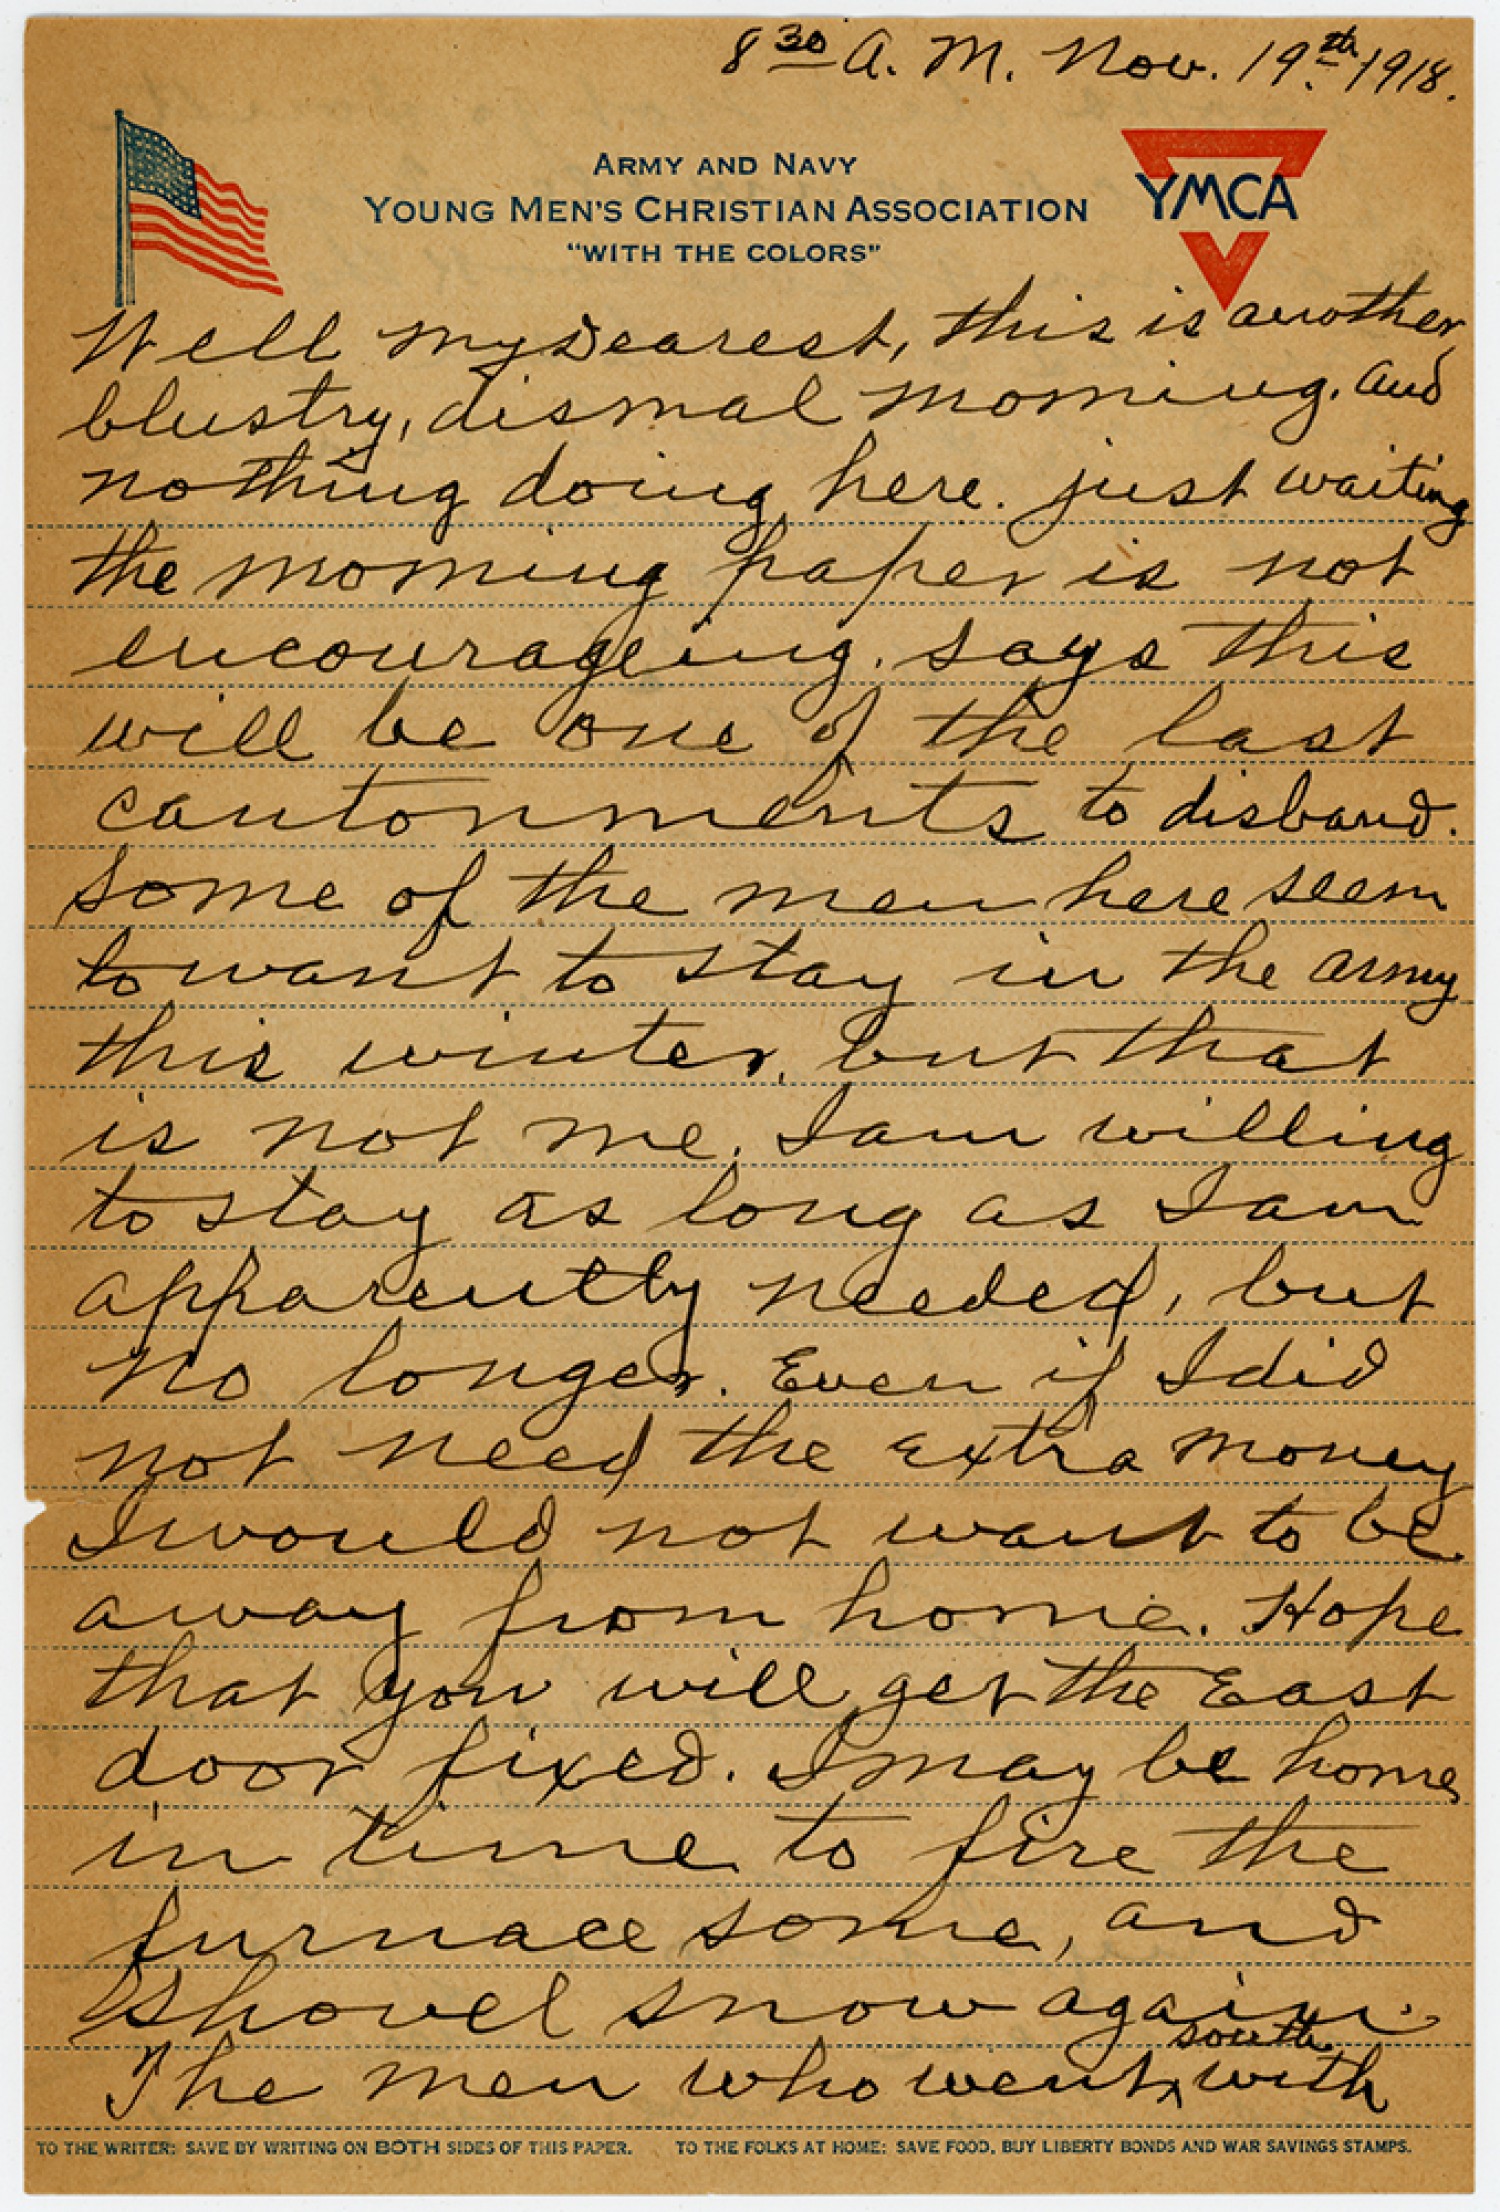 8 30 A. M. Nov. 19th. 1918.
ARMY AND NAVY
YOUNG MEN'S CHRISTIAN ASSOCIATION
"WITH THE COLORS"
YMCA
Well my Dearest, this is another
blustry, dismal morning. and
nothing doing here. just waiting
the morning paper is not
encourageing. says this
will be one of the last
cantonments to disband.
Some of the men here seem
to want to stay in the army
this winter, but that
is not me. I am willing
to stay as long as I am
apparently needed, but
no longer. Even if I did
not need the extra money
I would not want to be
away from home. Hope
that you will get the East
door fixed. I may be home
in time to fire the
furnace some, and
shovel snow again.
The men who went south with
TO THE WRITER: SAVE BY WRITING ON BOTH SIDES OF THIS PAPER. TO THE FOLKS AT HOME: SAVE FOOD, BUY LIBERTY BONDS AND WAR SAVINGS STAMPS.